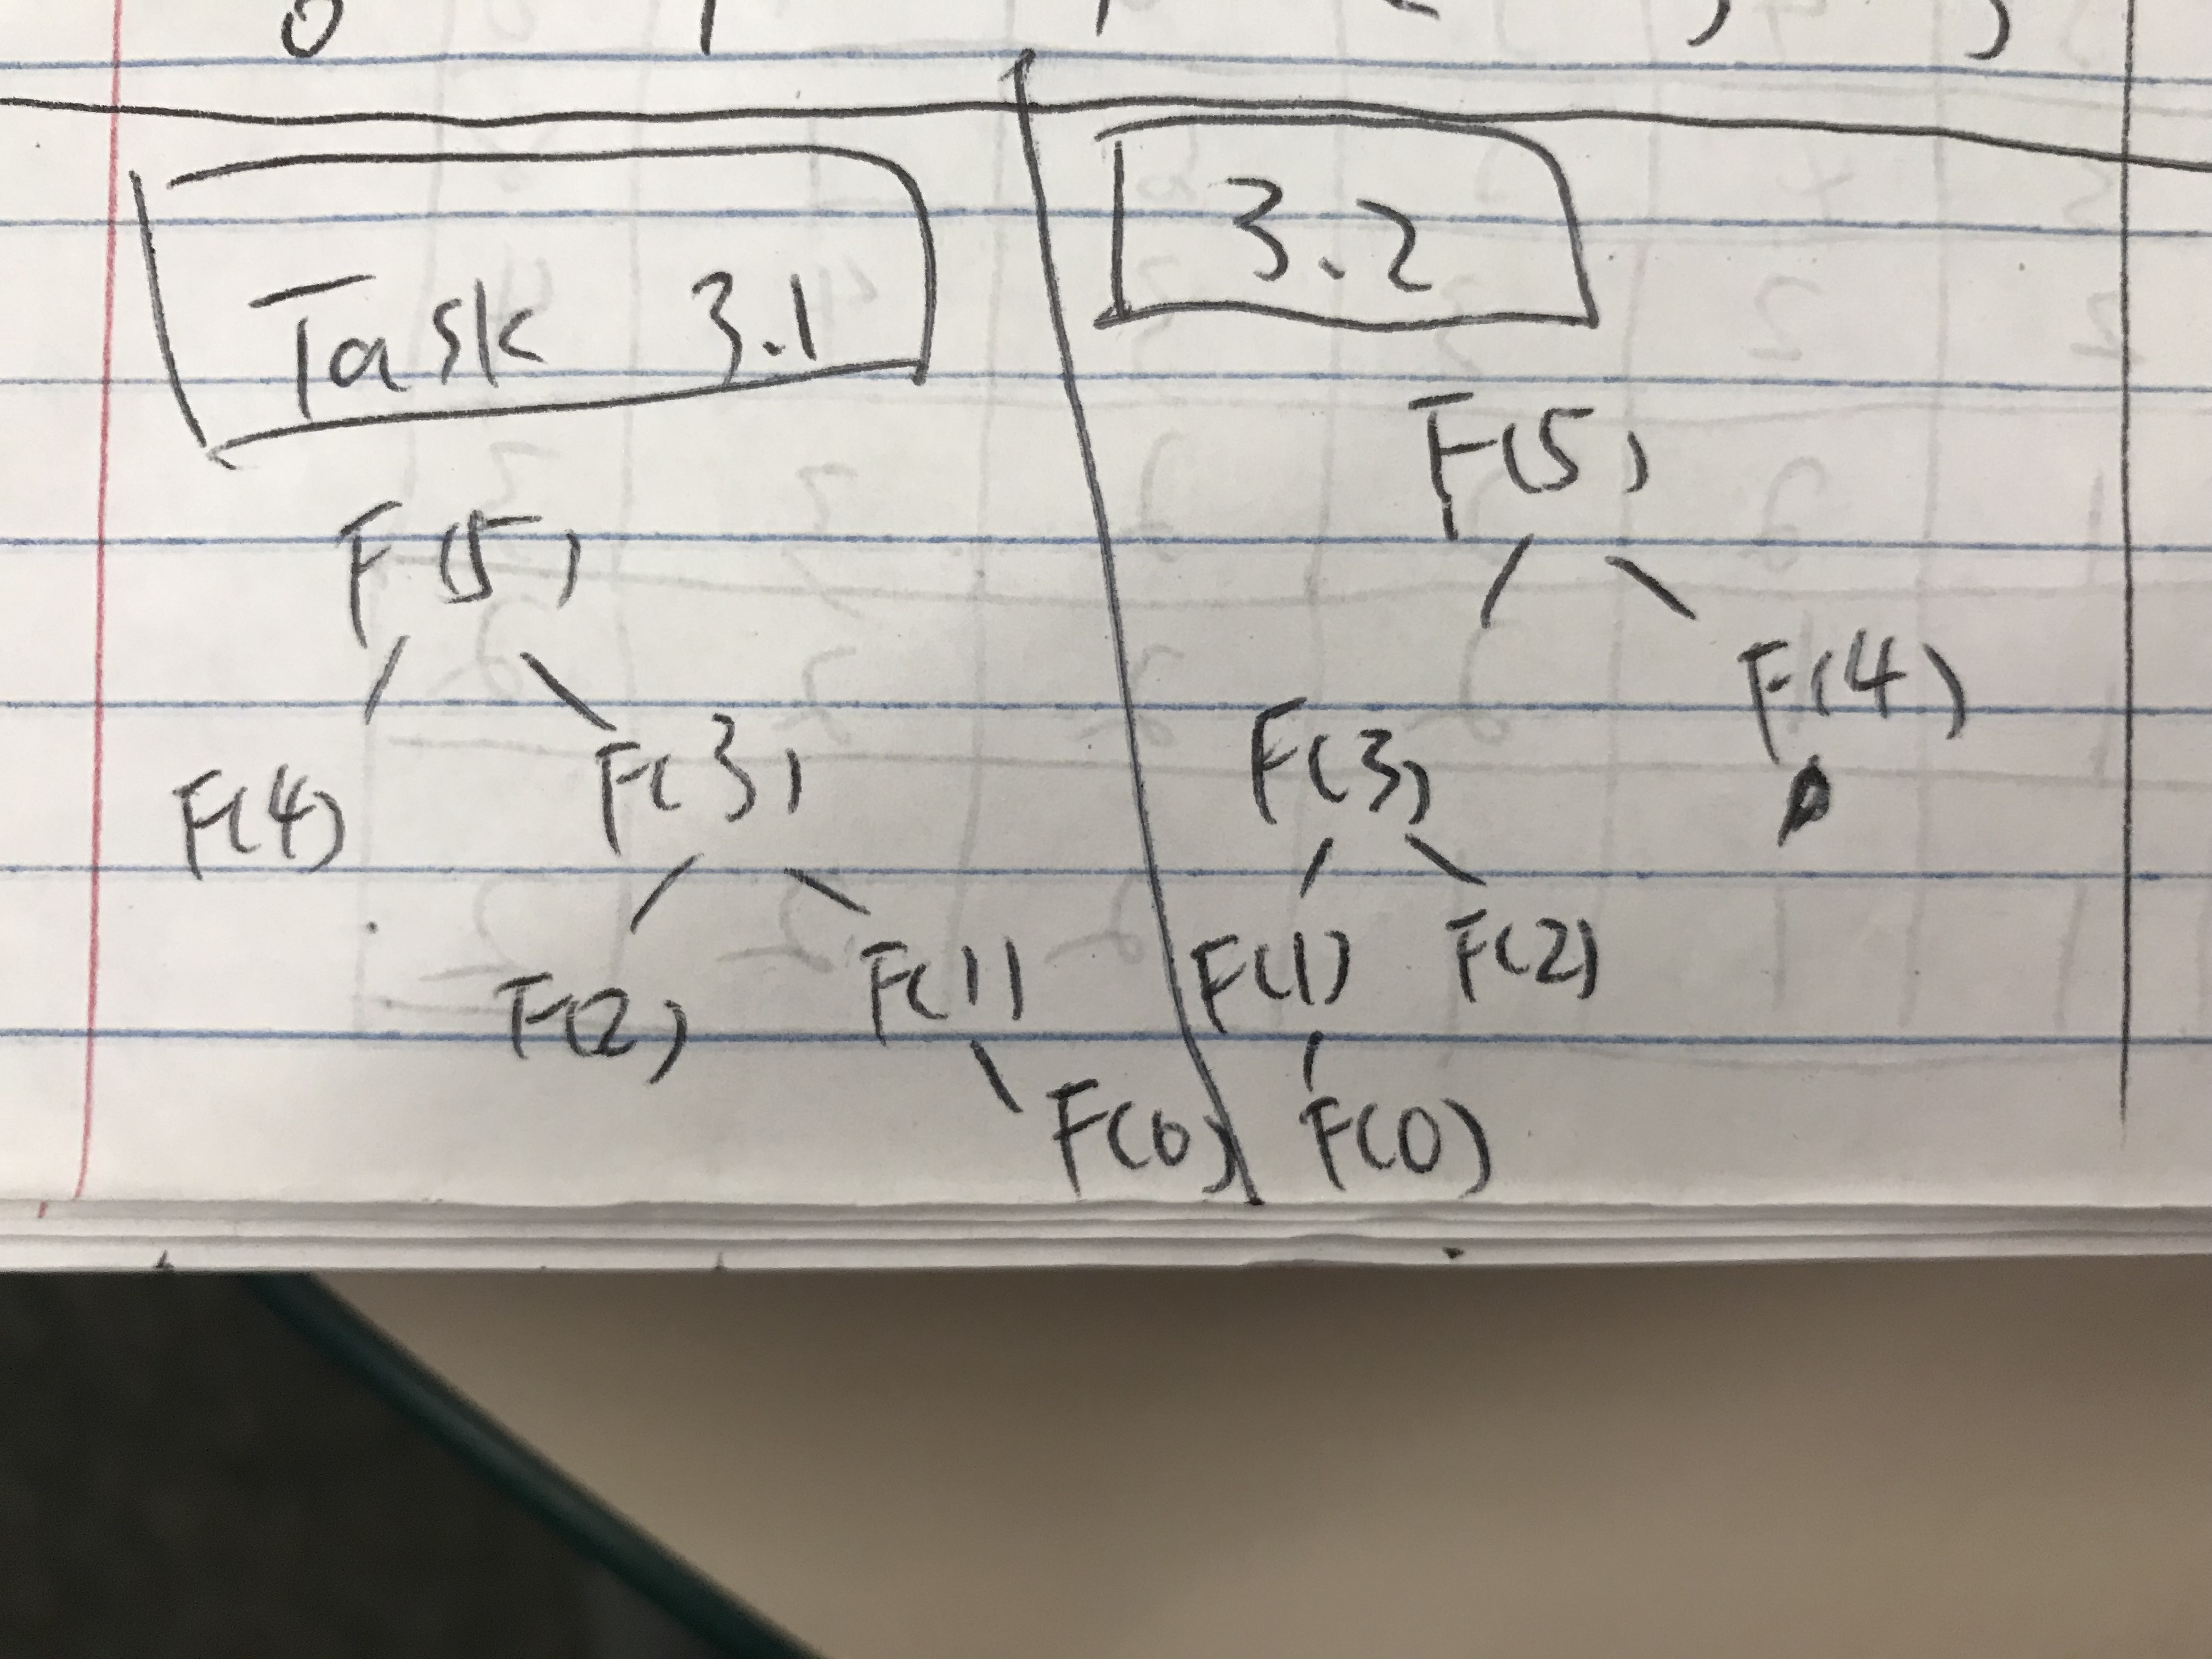 Task 3.1
F(5)
F(4) F(3)
F(2) F(1)
F(0)
3.2
F(5)
F(3) F(4)
F(1) F(2)
F(0)